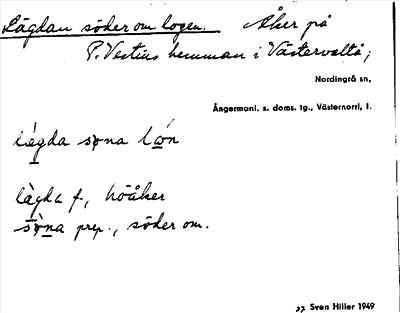 Lägdan söder om logen. Åker på
P. Vestins hemman i Västervalta;
Nordingrå sn,
Ångermanl. s. doms. tg., Västernorrl, l.
lǽgda søna lon
lägda f., höåker
söna prep., söder om.
27 Sven Hiller 1949